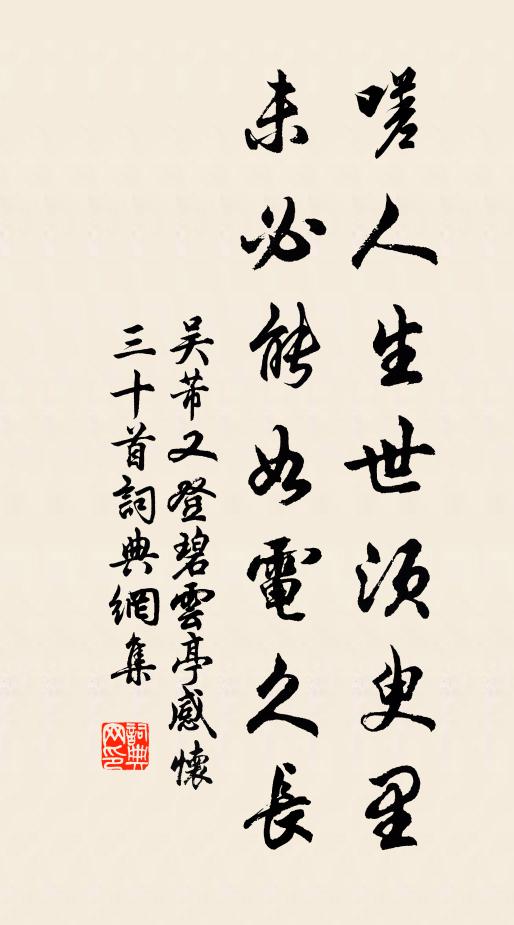 嗟人生世須臾里
未必能如電久長
吴芾又登碧雲亭感懷
三十首詞典網集
詞典
网印